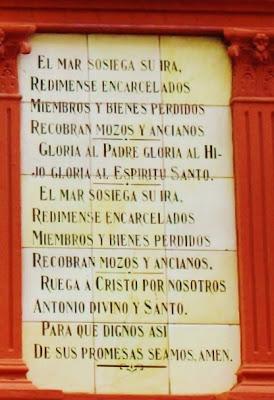 El mar sosiega su ira,
Redimense encarcelados
Miembros y bienes perdidos
Recobran mozos y ancianos
Gloria al Padre gloria al Hi-
jo gloria al Espiritu Santo.
El mar sosiega su ira,
Redimense encarcelados
Miembros y bienes perdidos
Recobran mozos y ancianos.
Ruega a Cristo por nosotros
Antonio divino y Santo.
Para que dignos asi
De sus promesas seamos, amen.